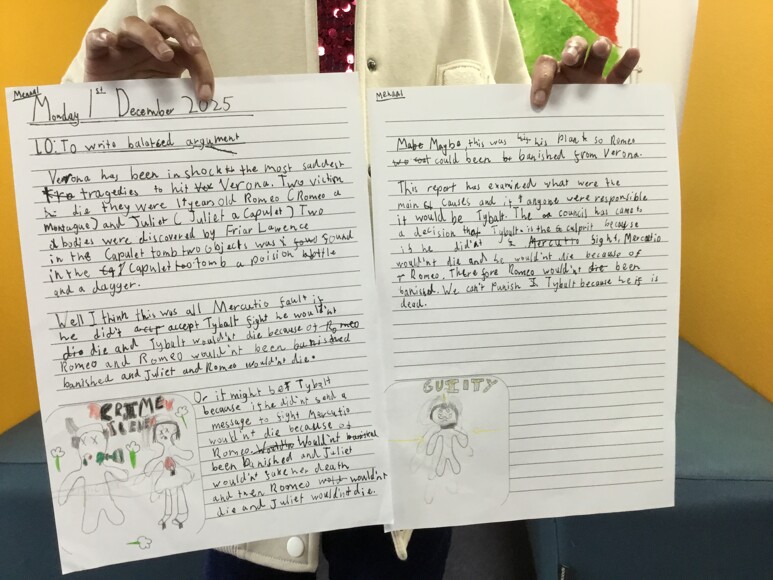 Mekaal
Monday 1st December 2025
LO: To write balanced argument
Verona has been in shock the most saddest
tragedies to hit Verona. Two victim
die they were 17 year old Romeo (Romeo a
Montague) and Juliet (Juliet a Capulet) Two
bodies were discovered by Friar Lawrence
in the Capulet tomb two objects was found
in the Capulet tomb a poision bottle
and a dagger.
Well I think this was all Mercutio fault if
he did't accept Tybalt fight he would'nt
die and Tybalt would'nt die because of
Romeo and Romeo would'nt been
banished and Juliet and Romeo would'nt die.
Or it might be Tybalt
because if he did'nt send a
message to fight Mercutio
would'nt die because of
Romeo Would'nt
been banished and Juliet
would'nt fake her death
and then Romeo would'nt
die and Juliet would'nt die.
CRIME
SCENE
Mekaal
Maybe, this was his plan so Romeo
could been banished from Verona.
This report has examined what were the
main causes and if anyone were responsible
it would be Tybalt. The council has come to
a decision that Tybalt is the culprit because
if he did'nt fight, Mercutio
would'nt die and he would'nt die because of
Romeo. Therefore Romeo would'nt been
banished. We can't Punish Tybalt because he is
dead.
GUILTY